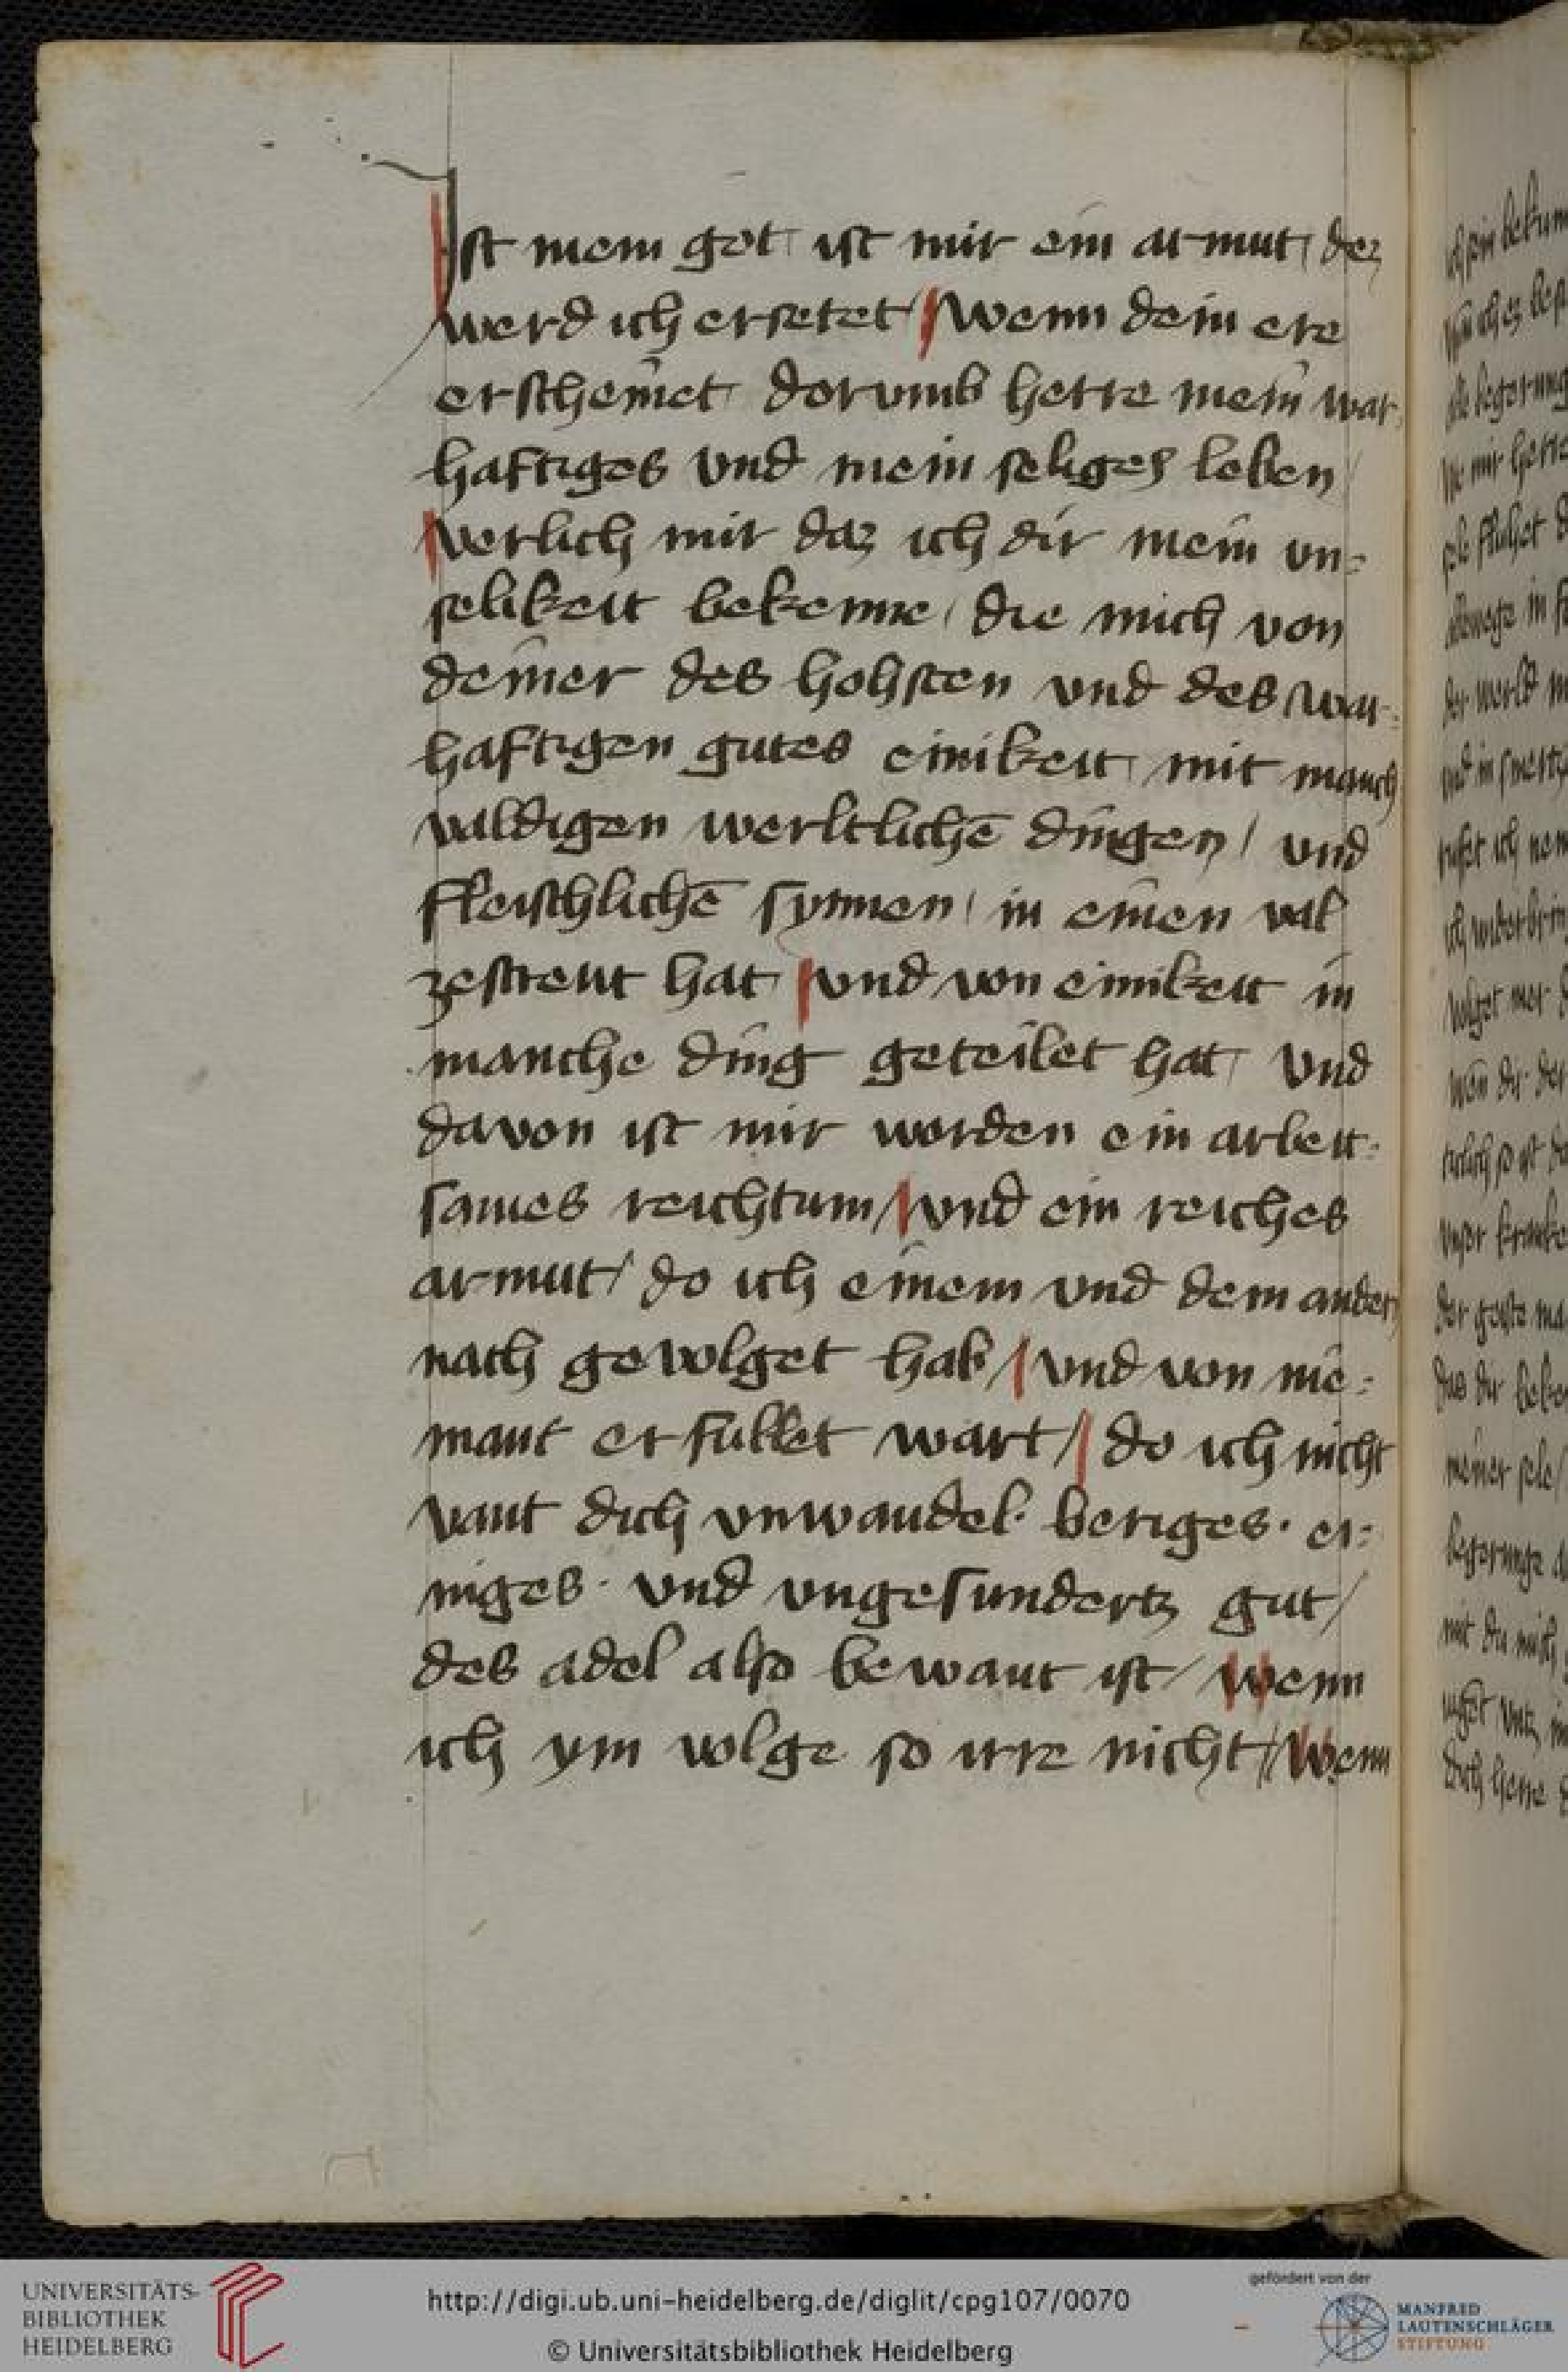 Ist mein got ist mir ein armut dez
werd ich ersetet / Wenn dein ere
erscheinet dorumb herre mein war
haftiges vnd mein seliges leben /
Verlich mir daz ich dir mein vn=
selikeit bekenne / die mich von
deiner des hohsten vnd des war=
haftigen gutes einikeit mit manch
valdigen werltlichē dingen / vnd
fleischlichē synnen / in einen val
zestreut hat / vnd von einikeit in
manche ding geteilet hat vnd
davon ist mir worden ein arbeit=
sames reichtum / vnd ein reiches
armut / do ich einem vnd dem andern
nach gevolget hab / vnd von nie=
mant erfullet wart / do ich nicht
vant dich vnwandel· beriges· ei=
niges· vnd vngesundertz gut /
des adel also bewant ist / wenn
ich ym volge so irre nicht / Wenn
UNIVERSITÄTS-
BIBLIOTHEK
HEIDELBERG
http://digi.ub.uni-heidelberg.de/diglit/cpg107/0070
© Universitätsbibliothek Heidelberg
gefördert von der
MANFRED
LAUTENSCHLÄGER
STIFTUNG